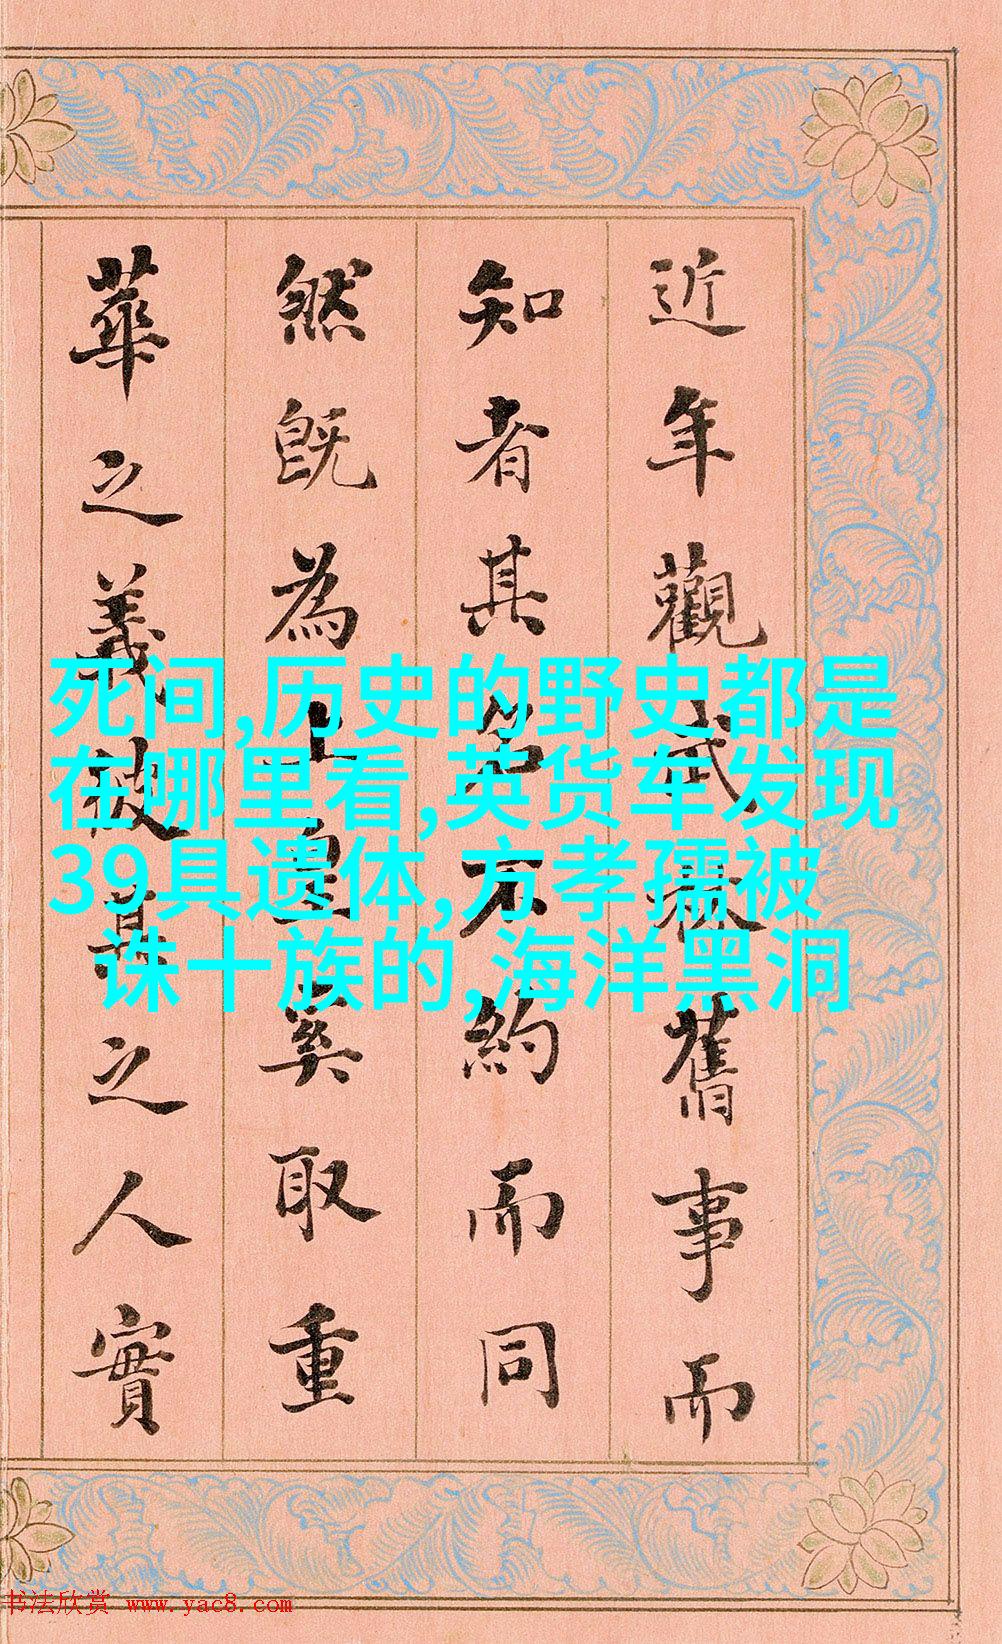 近年觀武林舊事而
知者其名不約而同
然既為上皇奚取重
華之義被之人實
死间,历史的野史都是
在哪里看,英货车发现
39具遗体,方孝孺被
诛十族的,海洋黑洞
书法欣赏 www.yac8.com